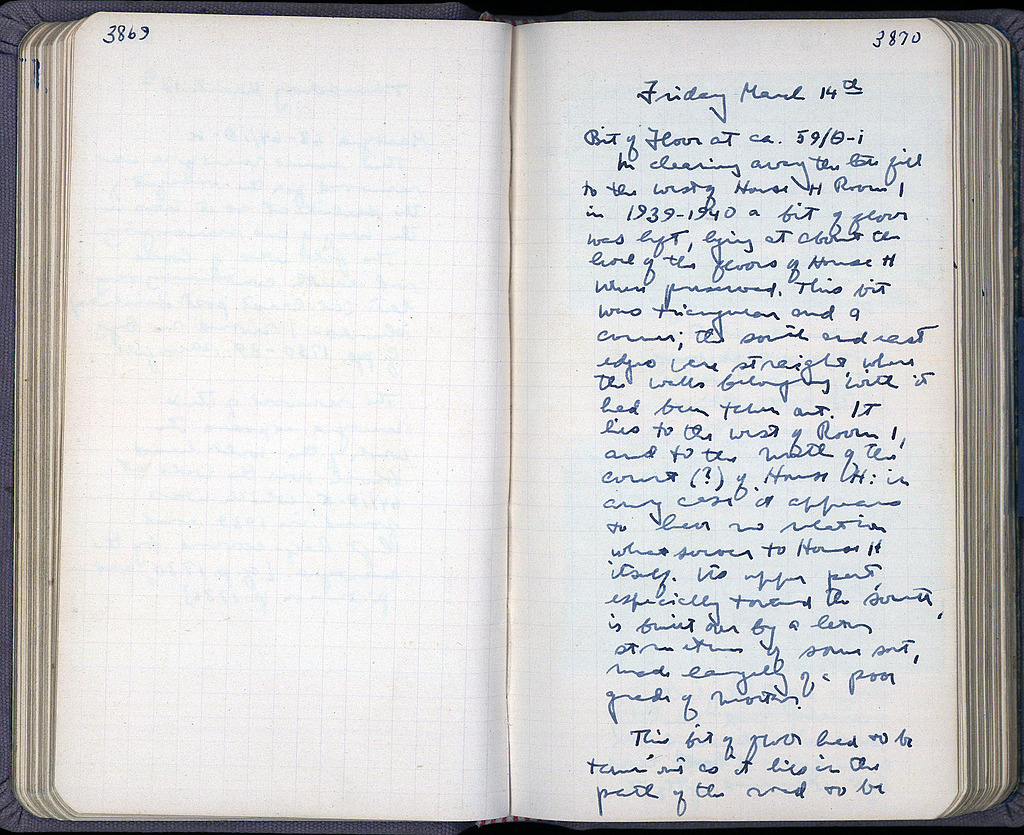 3869
3870
Friday March 14th
Bit of Floor at ca. 59/Θ-i
In clearing away the late fill
to the west of House H Room 1
in 1939-1940 a bit of floor
was left, lying at about the
level of the floors of House H
where preserved. This bit
was triangular and a
corner; the south and east
edges were straight where
the walls belonging with it
had been taken out. It
lies to the west of Room 1,
and to the north of the
court (?) of House H: in
any case it appears
to have no relation
whatsoever to House H
itself. Its upper part,
especially toward the south,
is built over by a later
structure of some sort,
made largely of a poor
grade of mortar.
This bit of floor had to be
taken out as it lies in the
path of the road to be